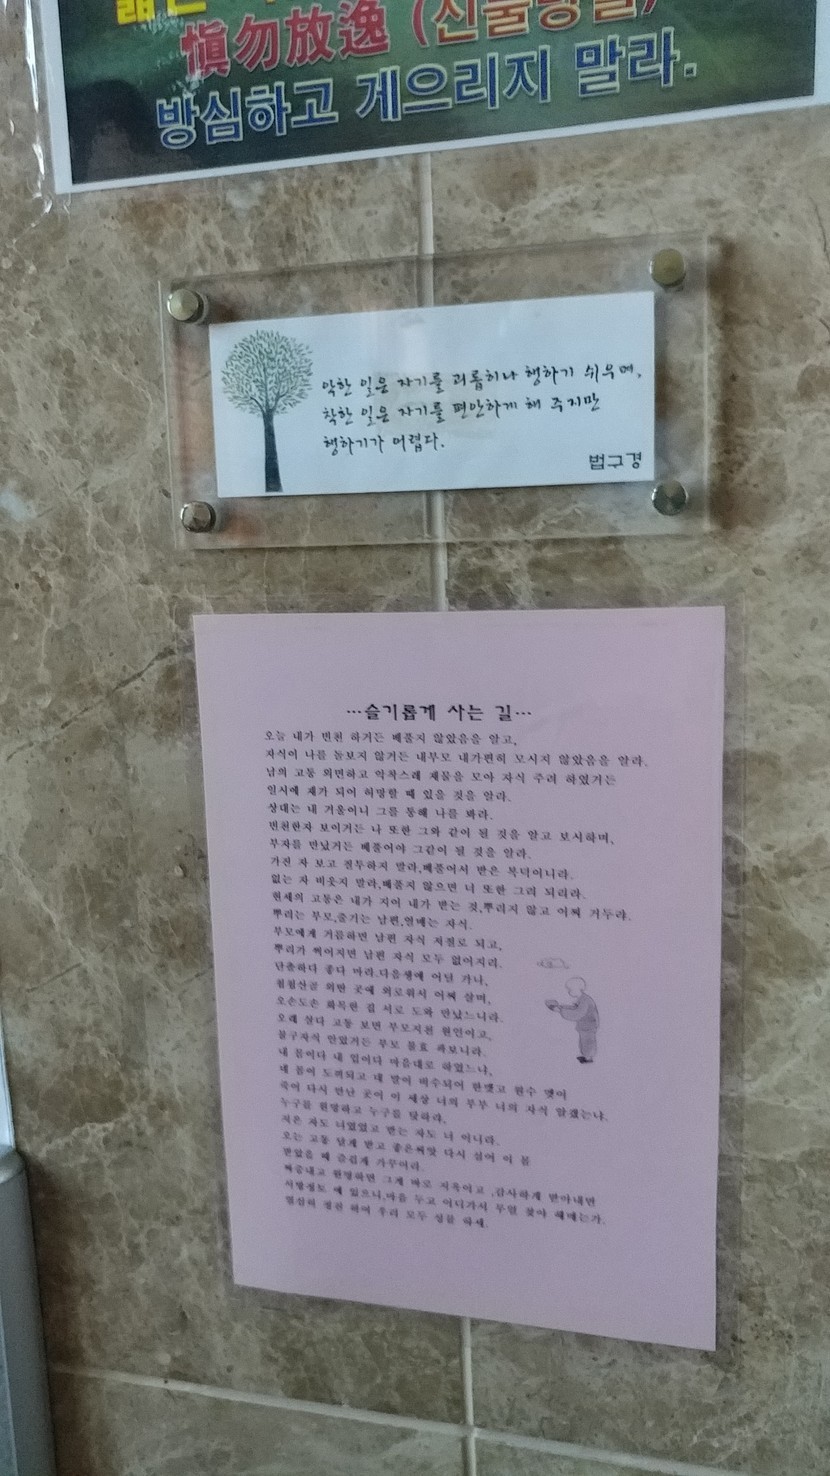 愼勿放逸 (신물방일)
방심하고 게으리지 말라.
악한 일은 자기를 괴롭히나 행하기 쉬우며,
착한 일은 자기를 편안하게 해 주지만
행하기가 어렵다.
법구경
...슬기롭게 사는 길...
오늘 내가 빈천 하거든 베풀지 않았음을 알고,
자식이 나를 돌보지 않거든 내부모 내가편히 모시지 않았음을 알라.
남의 고통 외면하고 악착스레 재물을 모아 자식 주려 하였거든
일시에 재가 되어 허망할 때 있을 것을 알라.
상대는 내 거울이니 그를 통해 나를 봐라.
빈천한자 보이거든 나 또한 그와 같이 될 것을 알고 보시하며,
부자를 만났거든 베풀어야 그같이 될 것을 알라.
가진 자 보고 질투하지 말라,베풀어서 받은 복덕이니라.
없는 자 비웃지 말라,베풀지 않으면 너 또한 그리 되리라.
현세의 고통은 내가 지어 내가 받는 것,뿌리지 않고 어찌 거두랴.
뿌리는 부모,줄기는 남편,열매는 자식.
부모에게 거름하면 남편 자식 저절로 되고,
뿌리가 썩어지면 남편 자식 모두 없어지리.
단촐하다 좋다 마라.다음생에 어딜 가나,
첩첩산골 외딴 곳에 외로워서 어찌 살며,
오손도손 화목한 집 서로 도와 만났느니라.
오래 살다 고통 보면 부모지천 원인이고,
불구자식 안았거든 부모 불효 과보니라.
내 몸이다 내 입이다 마음대로 하였느냐,
네 몸이 도끼되고 네 말이 비수되어 한맺고 원수 맺어
죽어 다시 만난 곳이 이 세상 너의 부부 너의 자식 알겠느냐.
누구를 원망하고 누구를 탓하랴,
지은 자도 너였었고 받는 자도 너 아니라.
오는 고통 달게 받고 좋은씨앗 다시 심어 이 몸
받았을 때 즐겁게 가꾸어라.
짜증내고 원망하면 그게 바로 지옥이고 ,감사하게 받아내면
서방정토 예 있으니,마음 두고 어디가서 무얼 찾아 헤매는가.
열심히 정진 하여 우리 모두 성불 하세.